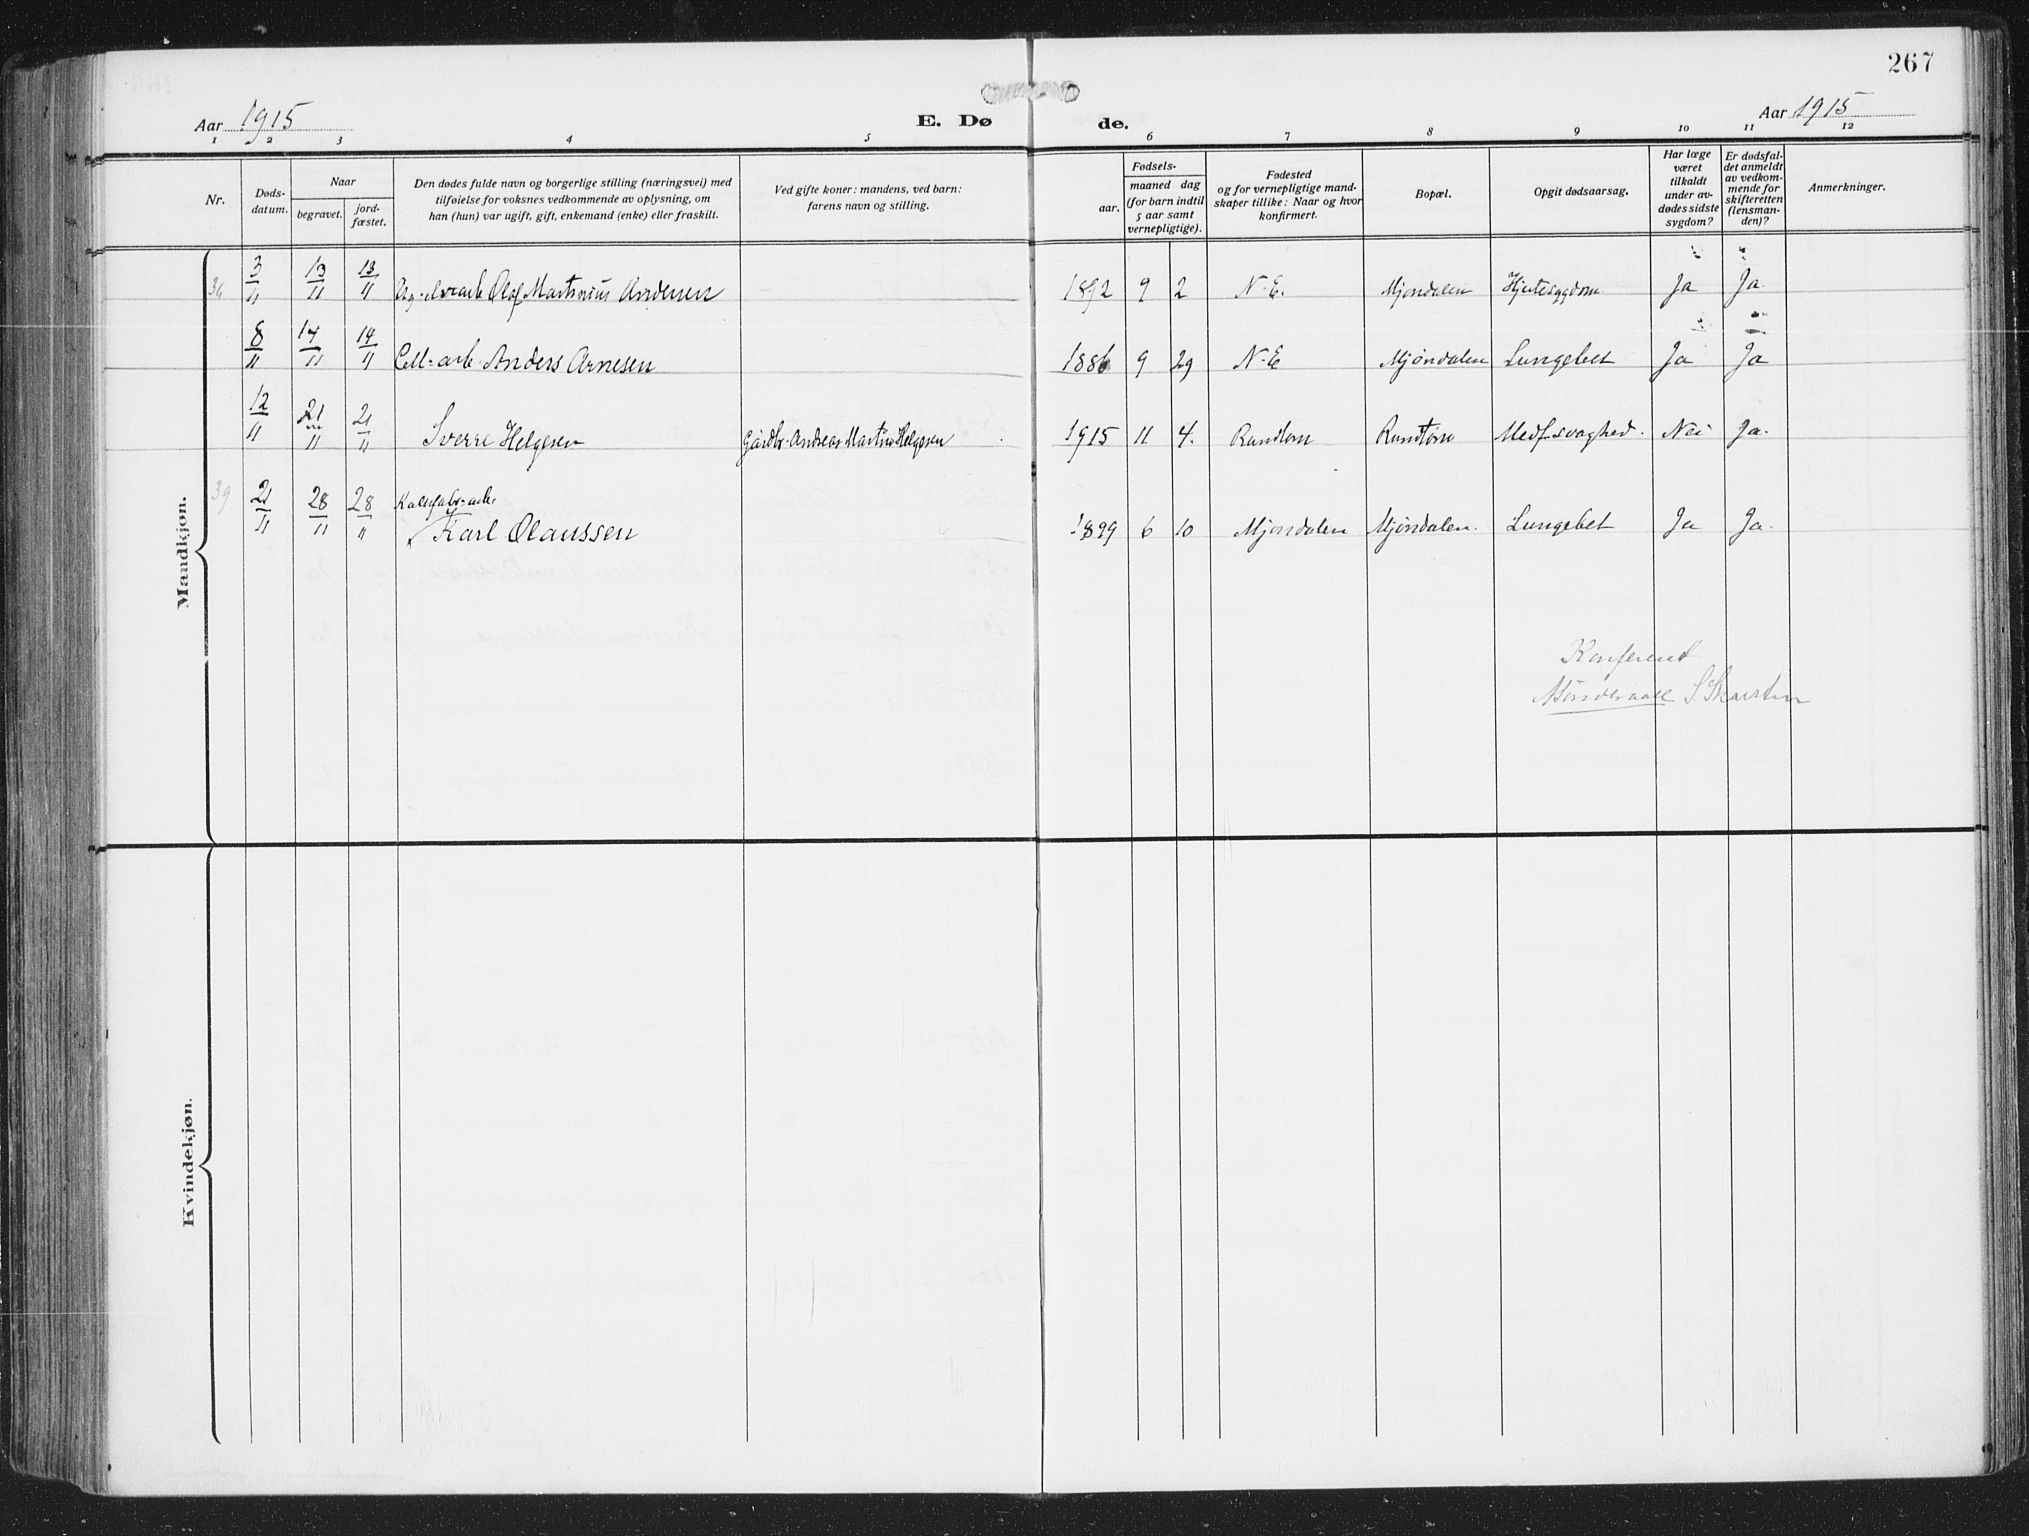 267
Aar 1915
E. Dø de.
Aar 1915
1 2 3 4 5 6 7 8 9 10 11 12
Nr.
Døds-
datum.
Naar
begravet.
jord-
fæstet.
Den dødes fulde navn og borgerlige stilling (næringsvei) med
tilføielse for voksnes vedkommende av oplysning, om
han (hun) var ugift, gift, enkemand (enke) eller fraskilt.
Ved gifte koner: mandens, ved barn:
farens navn og stilling.
Fødsels-
aar.
maaned dag
(for barn indtil
5 aar samt
vernepligtige).
Fødested
og for vernepligtige mand-
skaper tillike: Naar og hvor
konfirmert.
Bopæl.
Opgit dødsaarsag.
Har læge
været
tilkaldt
under av-
dødes sidste
sygdom?
Er dødsfal-
det anmeldt
av vedkom-
mende for
skifteretten
(lensman-
den)?
Anmerkninger.
Mandkjøn.
36 3/11 13/11 13/11 Olaf Martinius Andersen 1892 9 2 N.E. Mjøndalen Hjertesygdom Ja Ja.
8/11 14/11 14/11 Cell-arb. Anders Arnesen 1886 9 29 N-E Mjøndalen Lungebet Ja Ja
12/11 21/11 21/11 Sverre Helgesen Gårdbr. Andreas Martin Helgesen 1915 11 4. Rundtom Rundtom Medf. svaghed. Nei Ja.
39 21/11 28/11 28/11
Karl Olaussen 1899 6 10 Mjøndalen Mjøndalen. Lungebet Ja Ja.
Konfereret
S. Skarstein
Kvindekjøn.